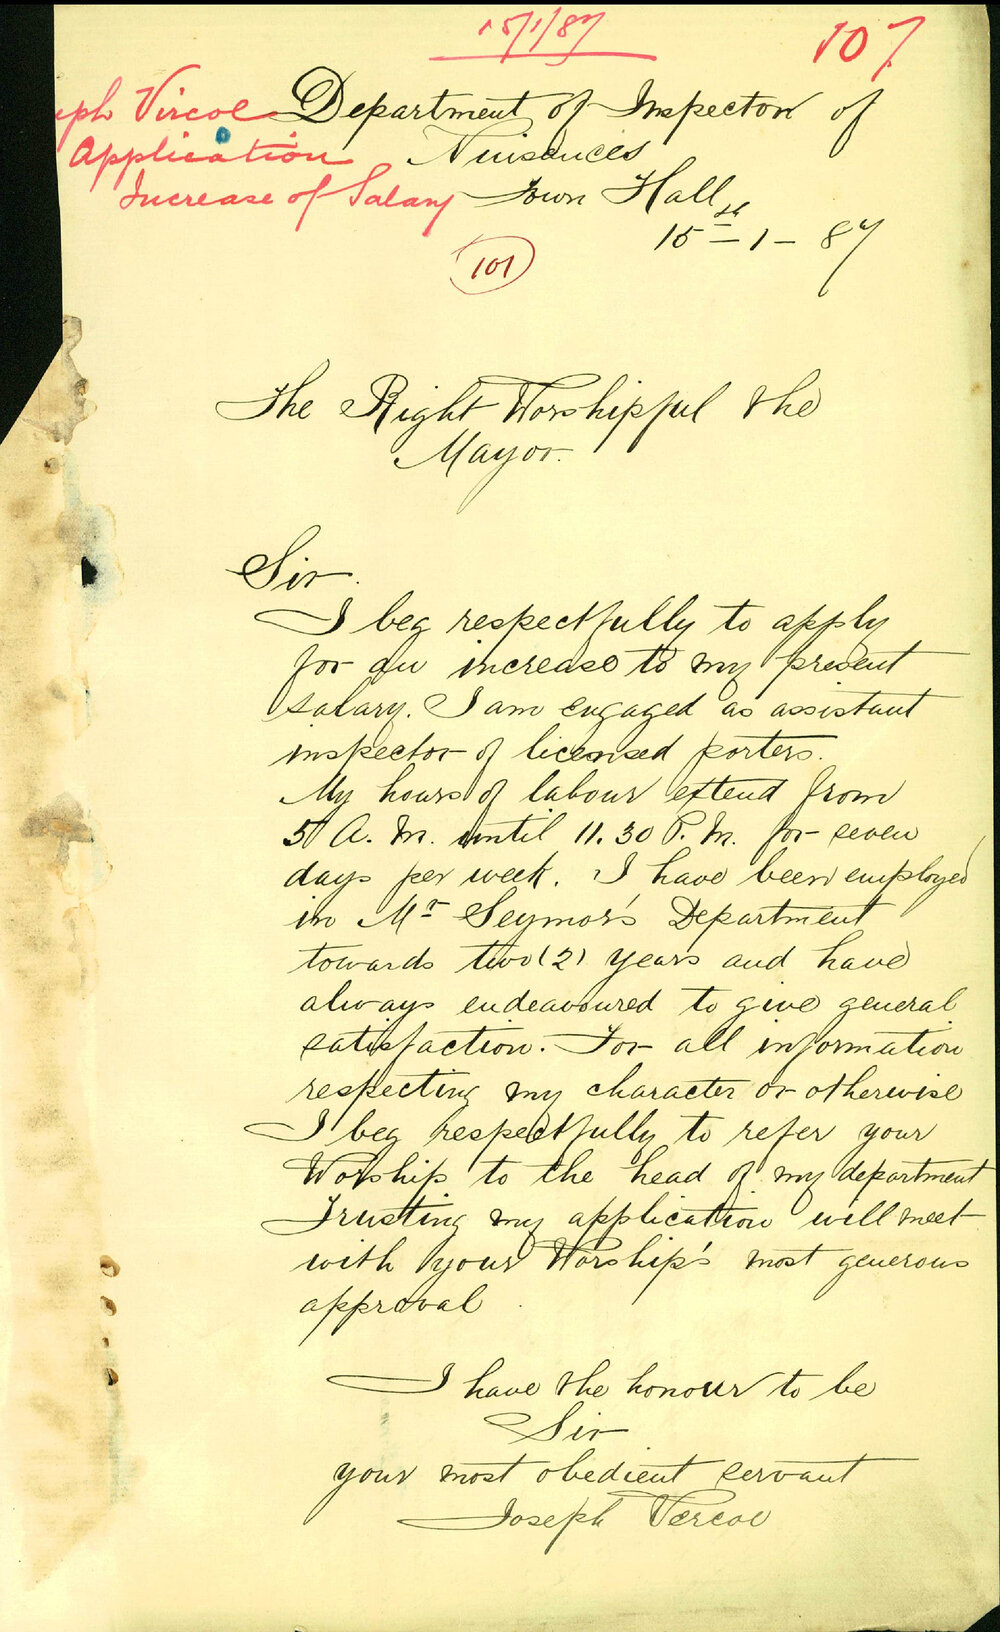 15/1/87
107
eph Vircoe
Application
Increase of Salary
Department of Inspector of
Nuisances
Town Hall
15th – 1 – 87
101
The Right Worshipful the
Mayor.
Sir.
I beg respectfully to apply
for an increase to my present
salary. I am engaged as assistant
inspector of licensed porters.
My hours of labour extend from
5 A. M. until 11.30 P. M. for seven
days per week. I have been employed
in Mr Seymor's Department
towards two (2) years and have
always endeavoured to give general
satisfaction. For all information
respecting my character or otherwise
I beg respectfully to refer your
Worship to the head of my department
Trusting my application will meet
with your Worship's most generous
approval
I have the honour to be
Sir
your most obedient servant
Joseph Vercoe